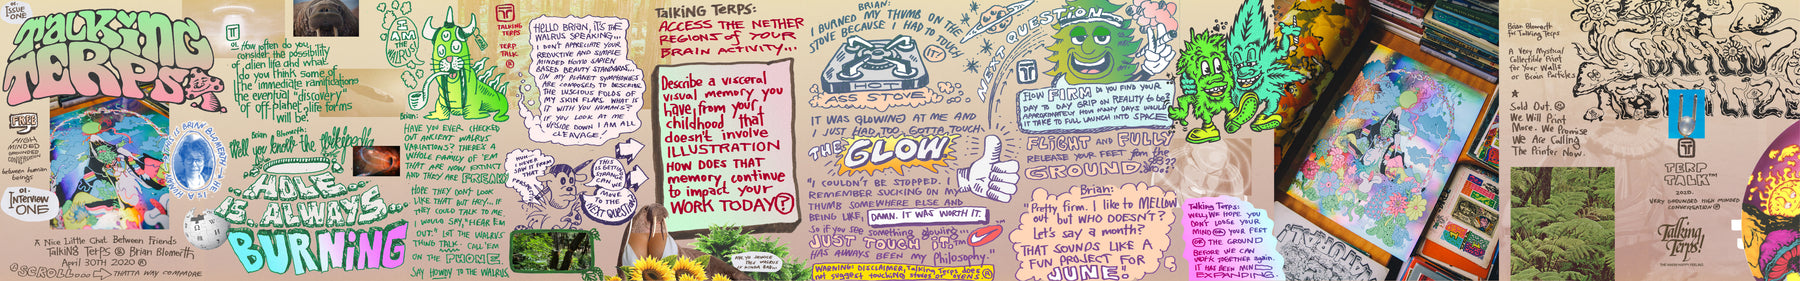 01.
ISSUE
ONE
TALKING
TERPS
FREE
HIGH
MINDED
GROUNDED
CONVERSATION
between human
beings
01.
Interview
ONE
A Nice Little Chat Between Friends
Talking Terps @ Brian Blomerth
April 30TH 2020 @
@SCROLL... THATTA WAY COMMADRE
THIS IS BRIAN BLOMERTH
HE IS A HUMAN
T
01. How often do you
consider the possibility
of alien life and what
do you think some of
the immediate ramifications
the eventual "discovery"
of off-planet life forms
will be?
Brian Blomerth:
Well you know the Wikipedia
HOLE
IS ALWAYS...
BURNING
I
AM
THE
Brian:
HAVE YOU EVER CHECKED
OUT ANCIENT WALRUS
VARIATIONS? THERE'S A
WHOLE FAMILY OF 'EM
THAT ARE NOW EXTINCT
AND THEY ARE FREAKY
HOPE THEY DON'T LOOK
LIKE THAT BUT HEY... IF
THEY COULD TALK TO ME,
I WOULD SAY, "HEAR EM
OUT." LET THE WALRUS
THING TALK. CALL 'EM
ON THE PHONE
SAY HOWDY TO THE WALRUS.
T
TALKING
TERPS
TERP
TALK
HELLO BRIAN, IT'S THE
WALRUS SPEAKING...
I DON'T APPRECIATE YOUR
REDUCTIVE AND SIMPLE
MINDED HOMO SAPIEN
BASED BEAUTY STANDARDS.
ON MY PLANET SYMPHONIES
ARE COMPOSED TO DESCRIBE
THE LUSCIOUS FOLDS OF
MY SKIN FLAPS. WHAT IS
IT WITH YOU HUMANS?
IF YOU LOOK AT ME
UPSIDE DOWN I AM ALL
CLEAVAGE!
HUH...
I NEVER
SAW IT FROM
THAT
THIS
IS GETTING
STRANGE
CAN WE
MOVE
TO THE
NEXT QUESTION
Talking Terps:
ACCESS THE NETHER
REGIONS OF YOUR
BRAIN ACTIVITY...
Describe a visceral
visual memory you
have from your
childhood that
doesn't involve
ILLUSTRATION
HOW DOES THAT
memory continue
to impact your
WORK TODAY?
BRIAN:
I BURNED MY THUMB ON THE
STOVE BECAUSE I HAD TO TOUCH
IT!
HOT
ASS STOVE
IT WAS GLOWING AT ME AND
I JUST HAD TOO GOTTA TOUCH
THE GLOW
"I COULDN'T BE STOPPED. I
REMEMBER SUCKING ON MY
THUMB SOMEWHERE ELSE AND
BEING LIKE, DAMN. IT WAS WORTH IT.
So if you see something glowing...
JUST TOUCH IT.™
HAS ALWAYS BEEN MY Philosophy."
WARNING! DISCLAIMER, Talking Terps does
not suggest touching stoves or ovens
NEXT QUESTION
T
HOW FIRM DO YOU FIND YOUR
DAY TO DAY GRIP ON REALITY to be?
APPROXIMATELY HOW MANY DAYS WOULD
IT TAKE TO FULL LAUNCH INTO SPACE
FLIGHT AND FULLY
RELEASE YOUR FEET from the
GROUND
Brian:
"Pretty firm. I like to MELLOW
out but WHO DOESN'T?
Let's say a month?
THAT SOUNDS LIKE A
FUN PROJECT FOR
JUNE"
Talking Terps:
WELL, WE HOPE YOU
DON'T LOSE YOUR
MIND OR YOUR FEET
OR THE GROUND
BEFORE WE CAN
WORK TOGETHER again.
IT HAS BEEN MIND
EXPANDING.
Brian Blomerth
for Talking Terps
A Very Mystical
Collectible Print
for Your Walls
or Brain Particles
Sold Out. @
We Will Print
More. We Promise
We Are Calling
The Printer Now.
T
TERP
TALK™
2020.
VERY GROUNDED HIGH MINDED
CONVERSATION @
Talking
Terps!